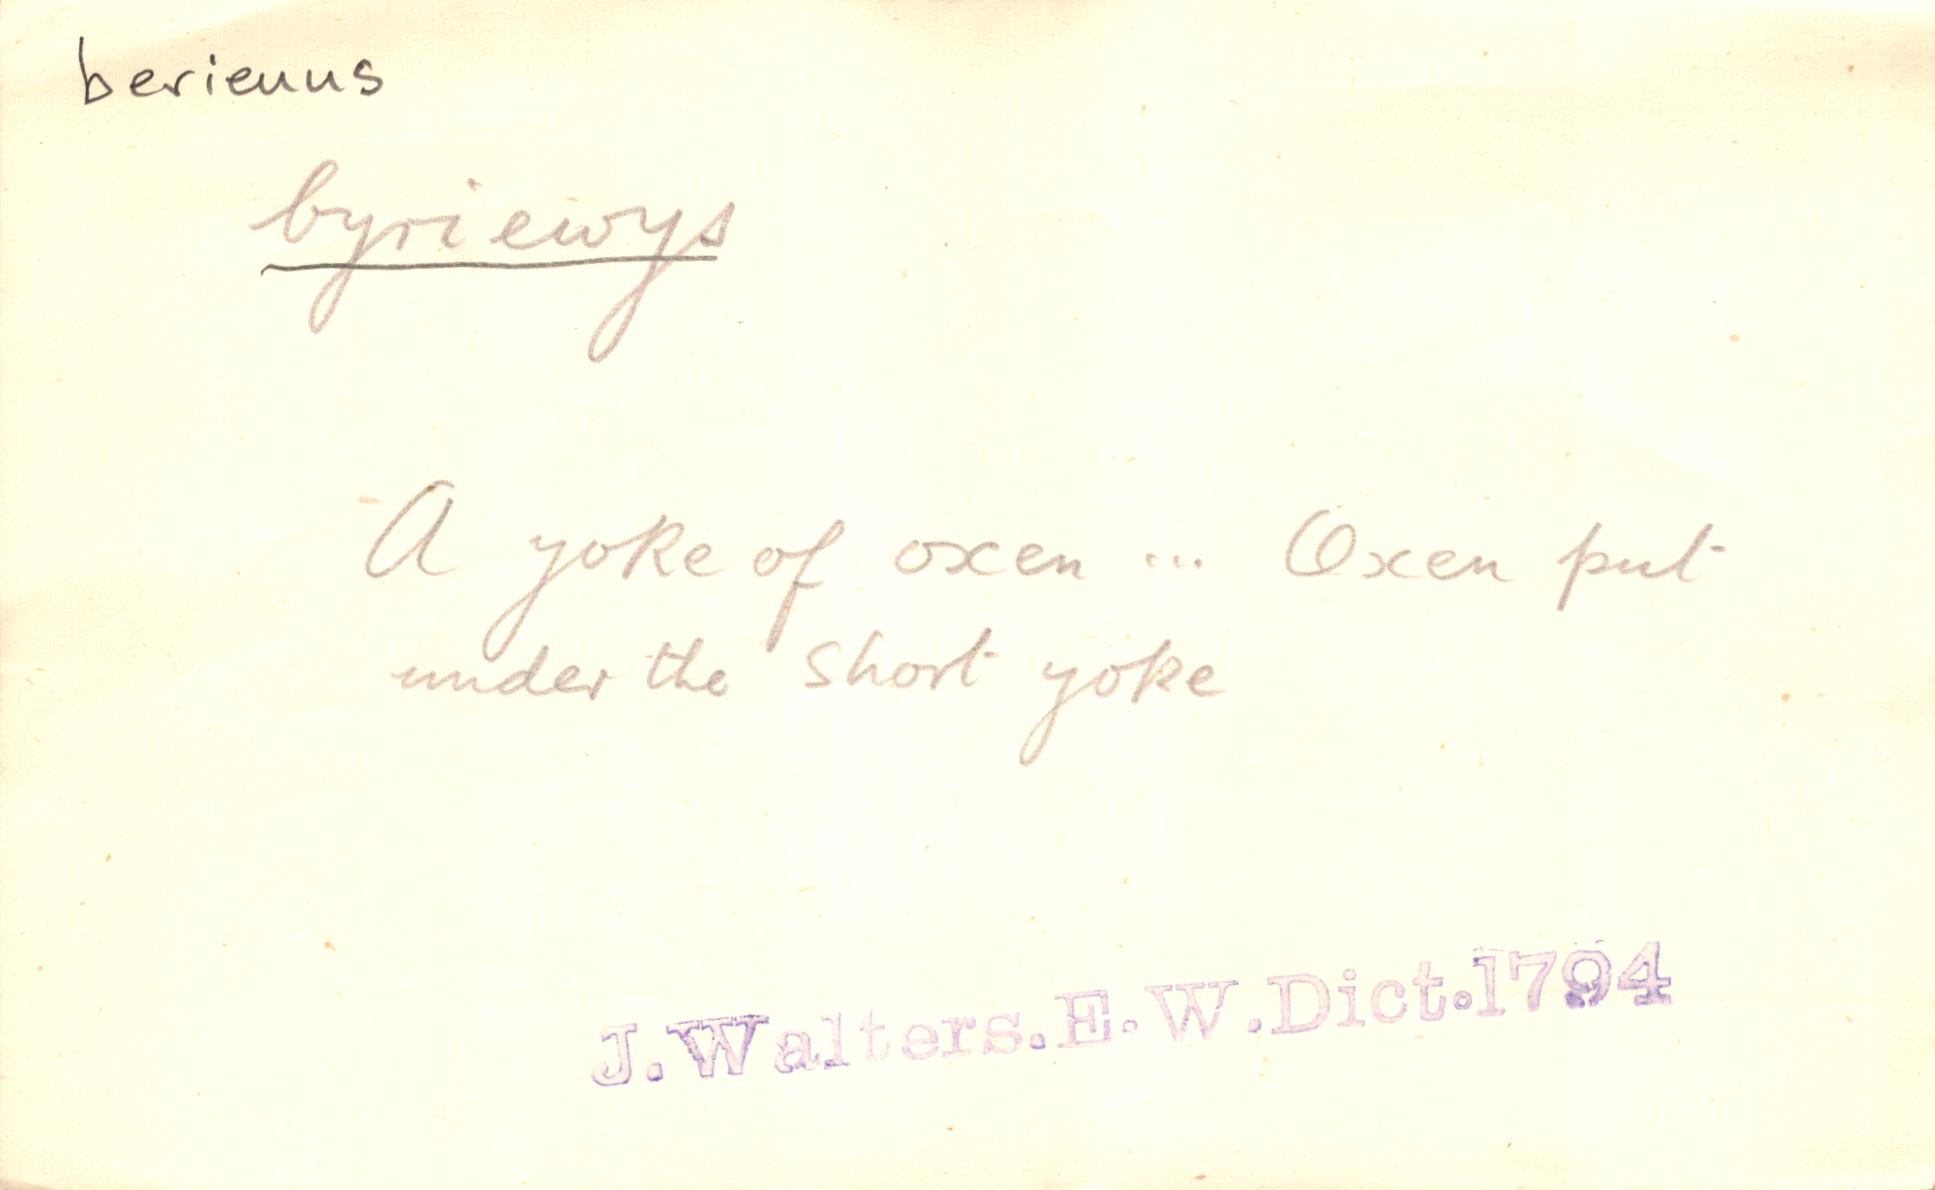 berieuus
byriewys
A yoke of oxen ... Oxen put
under the short yoke
J.Walters.E.W.Dict.1794